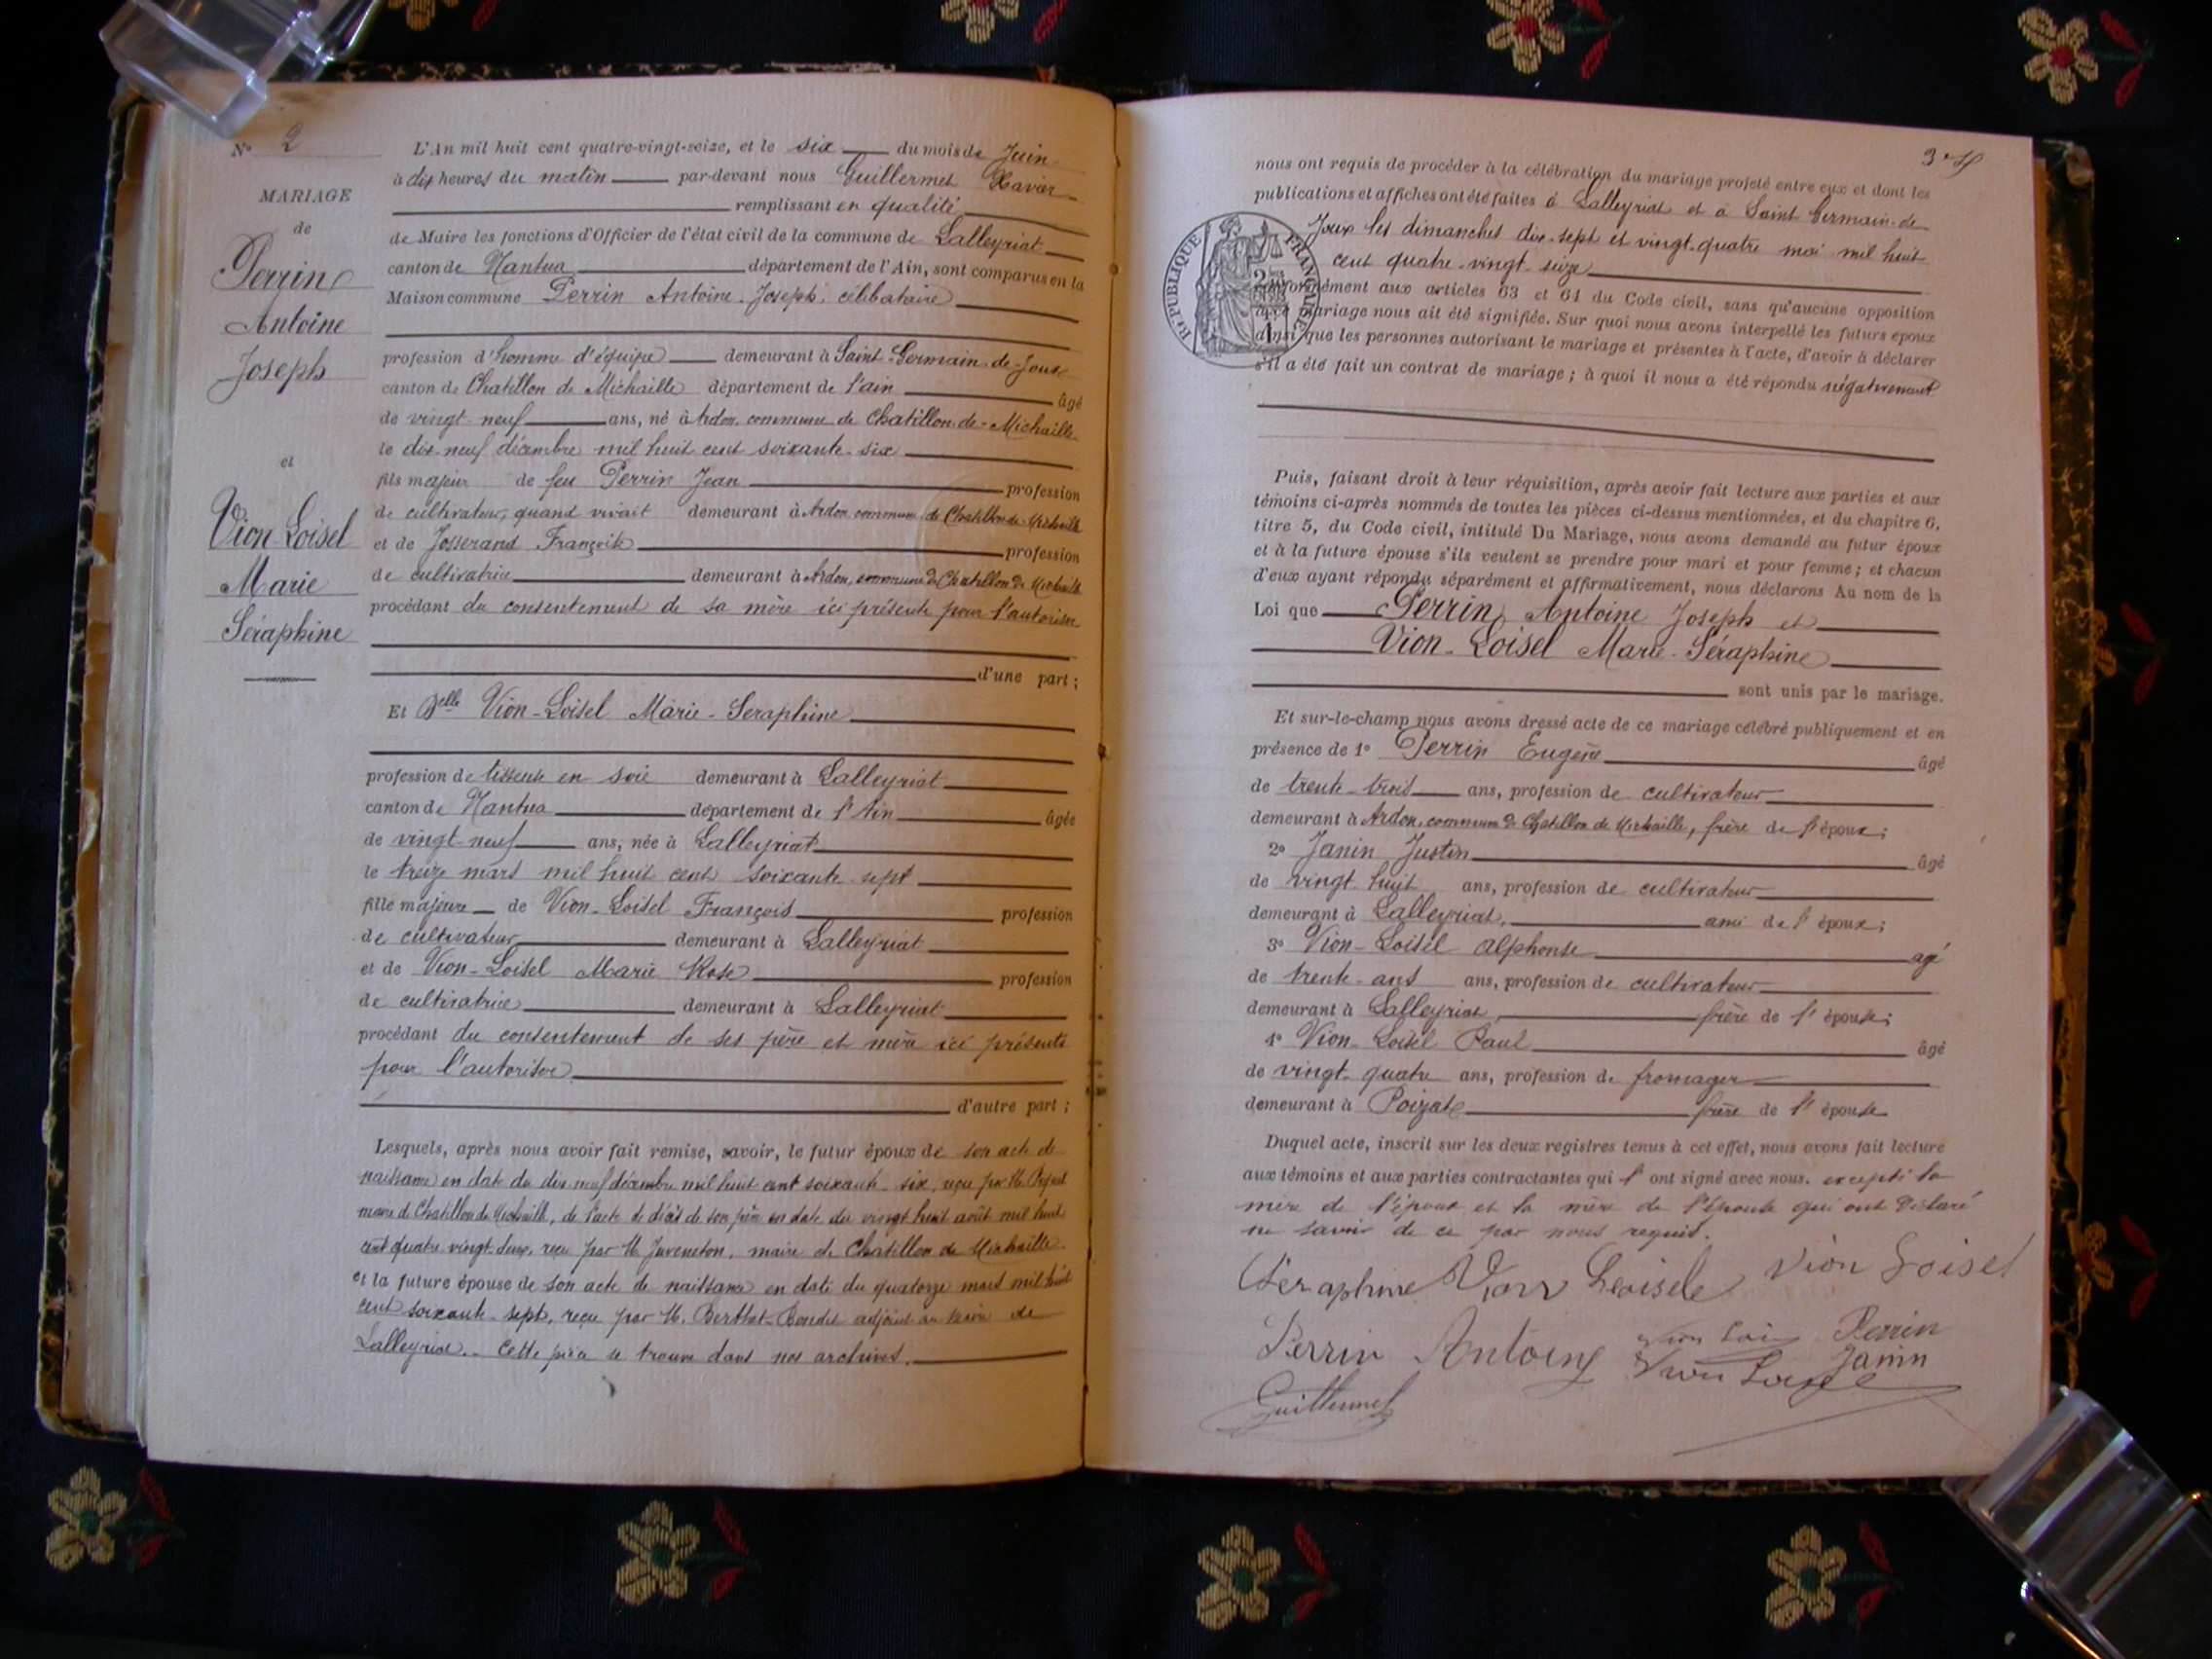 N° 2
MARIAGE
de
Perrin
Antoine
Joseph
et
Vion-Loisel
Marie
Séraphine
L'An mil huit cent quatre-vingt-seize, et le six du mois de Juin
à dix heures du matin par-devant nous Guillermet Xavier
remplissant en qualité
de Maire les fonctions d'Officier de l'état civil de la commune de Lalleyriat
canton de Nantua département de l'Ain, sont comparus en la
Maison commune Perrin Antoine-Joseph, célibataire
profession d'homme d'équipe demeurant à Saint-Germain-de-Joux
canton de Chatillon de Michaille département de l'ain âgé
de vingt-neuf ans, né à Ardon, commune de Chatillon-de-Michaille
le dix-neuf décembre mil huit cent soixante-six
fils majeur de feu Perrin Jean profession
de cultivateur, quand vivait demeurant à Ardon commune de Chatillon-de-Michaille
et de Josserand Françoise profession
de cultivatrice demeurant à Ardon, commune de Chatillon de Michaille
procédant du consentement de sa mère ici présente pour l'autoriser
d'une part ;
Et Delle Vion-Loisel Marie-Seraphine
profession de tisseuse en soie demeurant à Lalleyriat
canton de Nantua département de l'Ain âgée
de vingt-neuf ans, née à Lalleyriat
le treize mars mil huit cent soixante-sept
fille majeure de Vion-Loisel François profession
de cultivateur demeurant à Lalleyriat
et de Vion-Loisel Marie Rose profession
de cultivatrice demeurant à Lalleyriat
procédant du consentement de ses père et mère ici présents
pour l'autoriser
d'autre part ;
Lesquels, après nous avoir fait remise, savoir, le futur époux de son acte de
naissance en date du dix-neuf décembre mil huit cent soixante-six, reçu par M.
maire de Chatillon de Michaille, de l'acte de décès de son père en date du vingt huit août mil huit
cent quatre vingt-deux, reçu par M. Juveneton, maire de Chatillon de Michaille
et la future épouse de son acte de naissance en date du quatorze mars mil huit
cent soixante-sept, reçu par M. Berthet-Bondet adjoint au maire de
Lalleyriat. - Cette pièce se trouve dans nos archives.
3
nous ont requis de procéder à la célébration du mariage projeté entre eux et dont les
publications et affiches ont été faites à Lalleyriat et à Saint Germain-de-
Joux les dimanches dix-sept et vingt-quatre mai mil huit
cent quatre-vingt-seize
RÉPUBLIQUE FRANÇAISE
conformément aux articles 63 et 64 du Code civil, sans qu'aucune opposition
à ce mariage nous ait été signifiée. Sur quoi nous avons interpellé les futurs époux
ainsi que les personnes autorisant le mariage et présentes à l'acte, d'avoir à déclarer
s'il a été fait un contrat de mariage ; à quoi il nous a été répondu négativement
Puis, faisant droit à leur réquisition, après avoir fait lecture aux parties et aux
témoins ci-après nommés de toutes les pièces ci-dessus mentionnées, et du chapitre 6,
titre 5, du Code civil, intitulé Du Mariage, nous avons demandé au futur époux
et à la future épouse s'ils veulent se prendre pour mari et pour femme ; et chacun
d'eux ayant répondu séparément et affirmativement, nous déclarons Au nom de la
Loi que Perrin Antoine Joseph et
Vion-Loisel Marie-Séraphine
sont unis par le mariage.
Et sur-le-champ nous avons dressé acte de ce mariage célébré publiquement et en
présence de 1° Perrin Eugène âgé
de trente-trois ans, profession de cultivateur
demeurant à Ardon, commune de Chatillon de Michaille, frère de l'époux ;
2° Janin Justin âgé
de vingt-huit ans, profession de cultivateur
demeurant à Lalleyriat, ami de l'époux ;
3° Vion-Loisel Alphonse agé
de trente-ans ans, profession de cultivateur
demeurant à Lalleyriat, frère de l'épouse ;
4° Vion-Loisel Paul âgé
de vingt-quatre ans, profession de fromager
demeurant à Poizat frère de l'épouse
Duquel acte, inscrit sur les deux registres tenus à cet effet, nous avons fait lecture
aux témoins et aux parties contractantes qui l'ont signé avec nous. excepté la
mère de l'époux et la mère de l'épouse qui ont déclaré
ne savoir de ce par nous requis.
Séraphine Vion Loisele Vion Loisel
Perrin Antoine Perrin
Janin
Guillermet